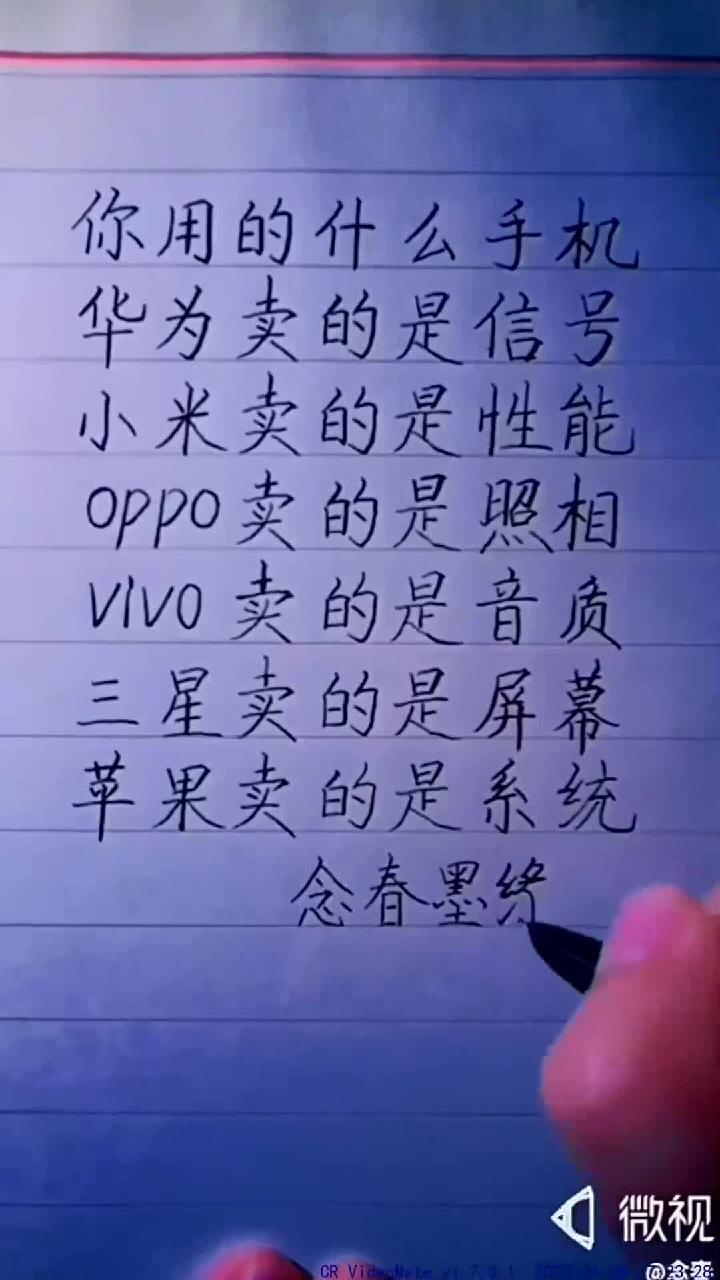 你用的什么手机
华为卖的是信号
小米卖的是性能
oppo卖的是照相
VIVO卖的是音质
三星卖的是屏幕
苹果卖的是系统
念春墨
微视
CR VideoMate